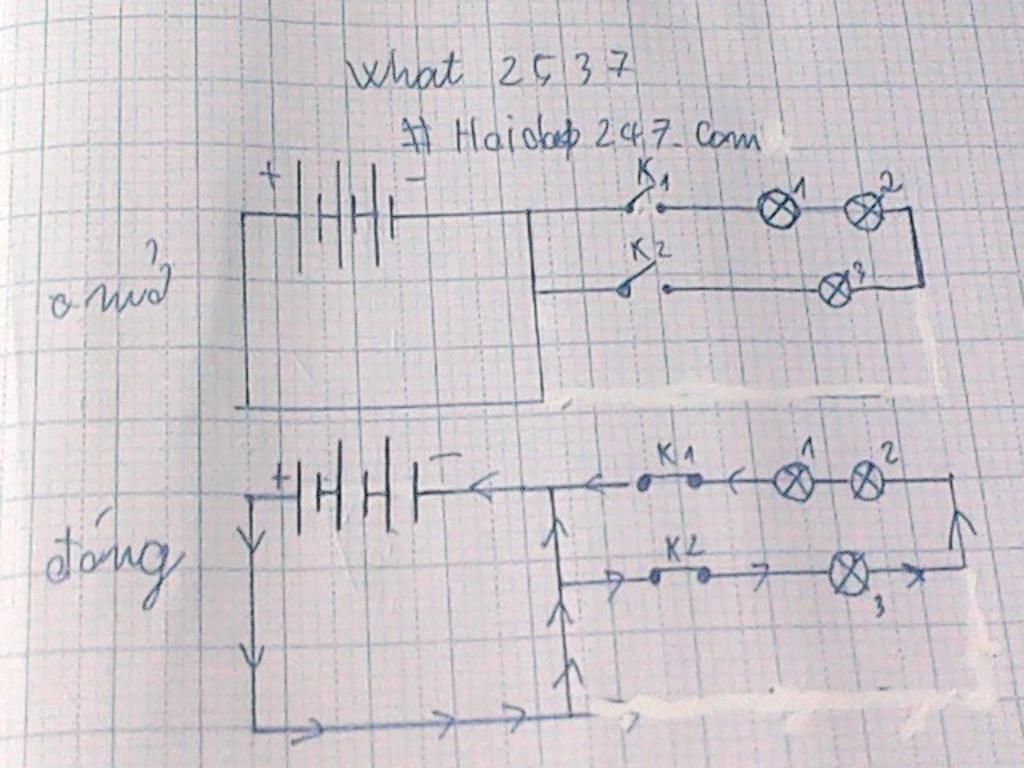 what 2537
# Hoidap247.com
+ - K1 1 2
mở
K2 3
+ - K1 1 2
đóng
K2
3